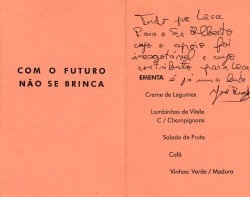 COM O FUTURO
NÃO SE BRINCA
Tudo por Leca
Para o Sr. Alberto
cujo o apoio foi
inesgotável e cujo
contributo para Leca
é já uma
EMENTA
Creme de Legumes
Lombinhos de Vitela
C / Champignons
Salada de Fruta
Café
Vinhos: Verde / Maduro